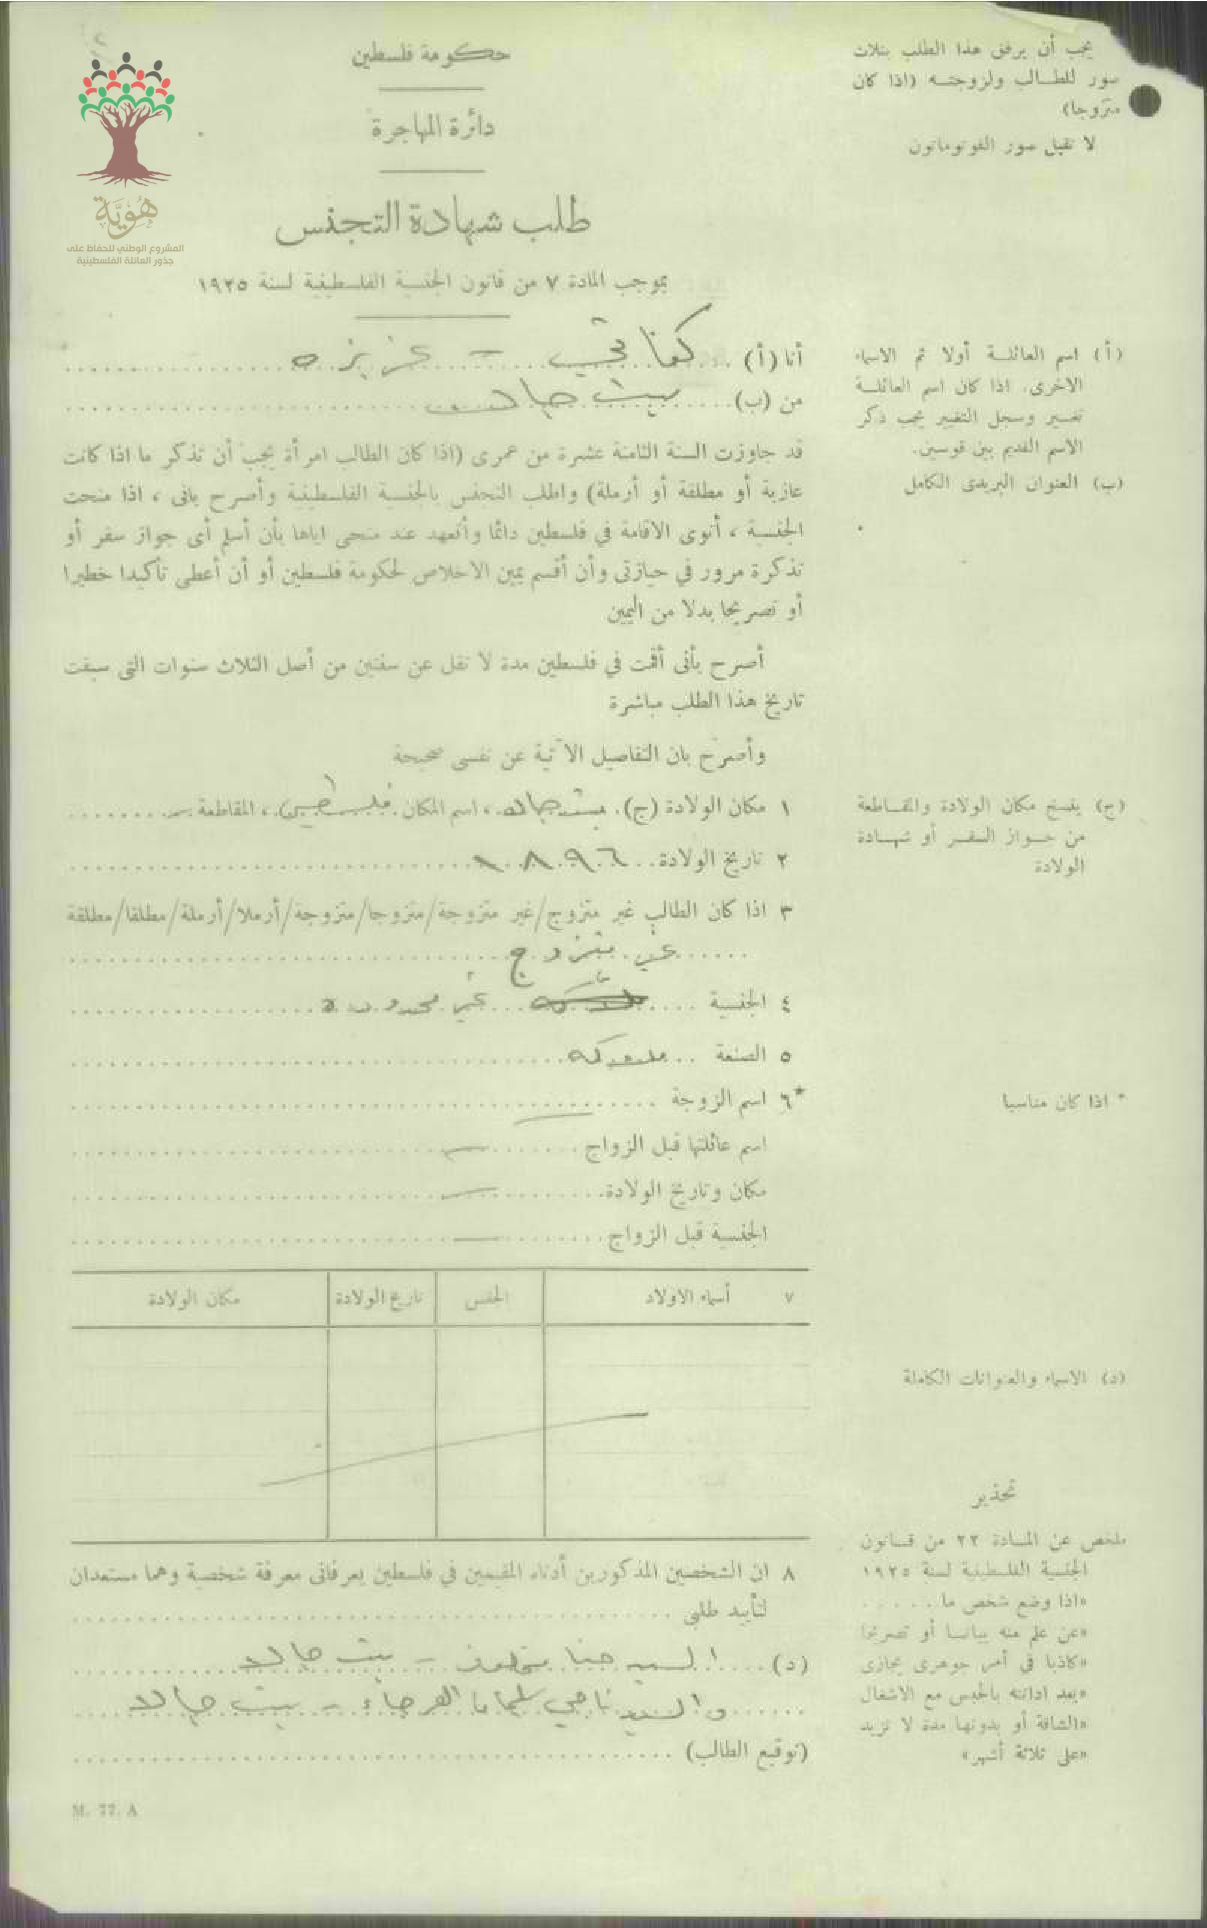 حكومة فلسطين
دائرة المهاجرة
طلب شهادة التجنس
بموجب المادة ٧ من قانون الجنسية الفلسطينية لسنة ١٩٢٥
يجب أن يرفق هذا الطلب بثلاث
صور للطالب ولزوجته (اذا كان
متزوجا)
لا تقبل صور الفوتوماتون
هُوِيَّة
المشروع الوطني للحفاظ على
جذور العائلة الفلسطينية
أنا (أ) ... – عزيزه
من (ب) بيت جالا
(أ) اسم العائلة أولا ثم الاسماء
الاخرى. اذا كان اسم العائلة
تغير وسجل التغيير يجب ذكر
الاسم القديم بين قوسين.
(ب) العنوان البريدى الكامل
قد جاوزت السنة الثامنة عشرة من عمرى (اذا كان الطالب امرأة يجب أن تذكر ما اذا كانت
عازبة أو مطلقة أو أرملة) واطلب التجنس بالجنسية الفلسطينية وأصرح بانى ، اذا منحت
الجنسية ، أنوى الاقامة في فلسطين دائما وأتعهد عند منحى اياها بأن أسلم أى جواز سفر أو
تذكرة مرور في حيازتى وأن أقسم يمين الاخلاص لحكومة فلسطين أو أن أعطى تأكيدا خطيرا
أو تصريحا بدلا من اليمين
أصرح بأنى أقمت في فلسطين مدة لا تقل عن سنتين من أصل الثلاث سنوات التى سبقت
تاريخ هذا الطلب مباشرة
وأصرح بان التفاصيل الآتية عن نفسى صحيحة
١ مكان الولادة (ج) بيت جالا ، اسم المكان فلسطين ، المقاطعة
(ج) ينسخ مكان الولادة والمقاطعة
من جواز السفر أو شهادة
الولادة
٢ تاريخ الولادة ١٨٩٦
٣ اذا كان الطالب غير متزوج/غير متزوجة/متزوجا/متزوجة/أرملا/أرملة/مطلقا/مطلقة
غير متزوج
٤ الجنسية غير محدودة
٥ الصنعة
*٦ اسم الزوجة
* اذا كان مناسبا
اسم عائلتها قبل الزواج
مكان وتاريخ الولادة
الجنسية قبل الزواج
٧ أسماء الاولاد الجنس تاريخ الولادة مكان الولادة
(د) الاسماء والعنوانات الكاملة
تحذير
ملخص عن المادة ٢٢ من قانون
الجنسية الفلسطينية لسنة ١٩٢٥
«اذا وضع شخص ما . . . . .
«عن علم منه بيانا أو تصريحا
«كاذبا في أمر جوهرى يجازى
«بعد ادانته بالحبس مع الاشغال
«الشاقة أو بدونها مدة لا تزيد
«على ثلاثة أشهر»
٨ ان الشخصين المذكورين أدناه المقيمين في فلسطين يعرفانى معرفة شخصية وهما مستعدان
لتأييد طلبى
(د) السيد حنا مخلوف – بيت جالا
والسيد ناجي سليمان العرجاء – بيت جالا
(توقيع الطالب)
M. 77. A